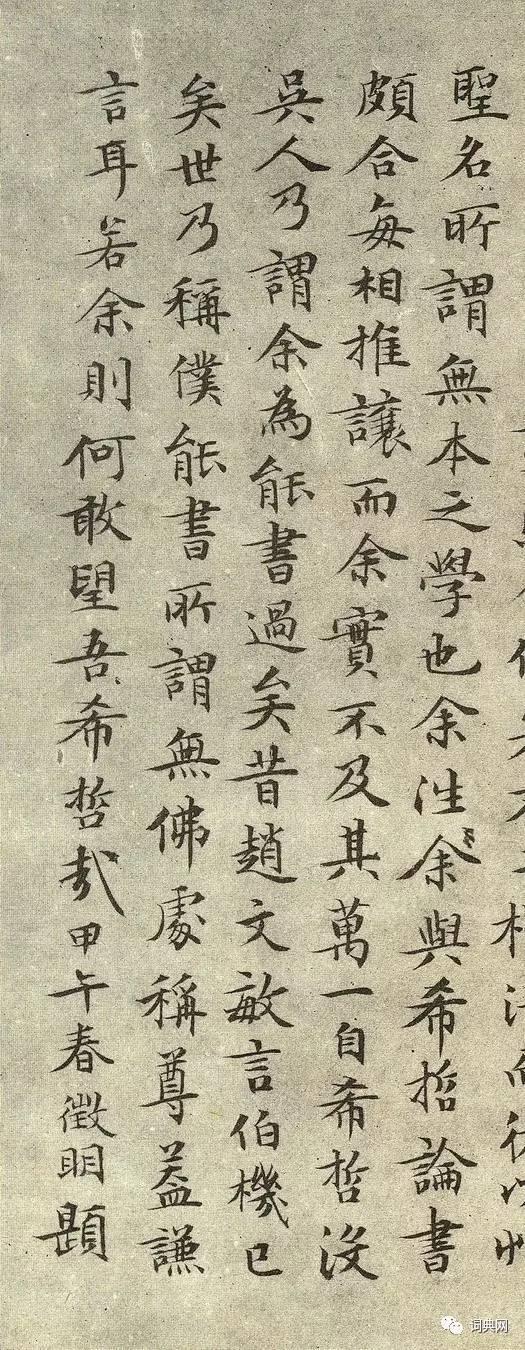 聖名所謂無本之學也余往余與希哲論書
頗合每相推讓而余實不及其萬一自希哲沒
吳人乃謂余為能書過矣昔趙文敏言伯機已
矣世乃稱僕能書所謂無佛處稱尊蓋謙
言耳若余則何敢望吾希哲哉甲午春徵明題
词典网